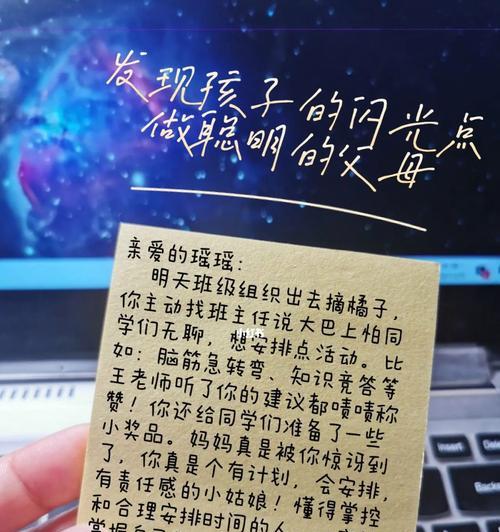 发现孩子的闪光点
做聪明的父母
亲爱的瑶瑶:
明天班级组织出去摘橘子,
你主动找班主任说大巴上怕同
学们无聊,想安排点活动。比
如:脑筋急转弯、知识竞答等
王老师听了你的建议都啧啧称
赞!你还给同学们准备了一些
小奖品。妈妈真是被你惊讶到
了,你真是个有计划,会安排,
有责任感的小姑娘!懂得掌控
和合理安排时间的人,
小红书
Backspace